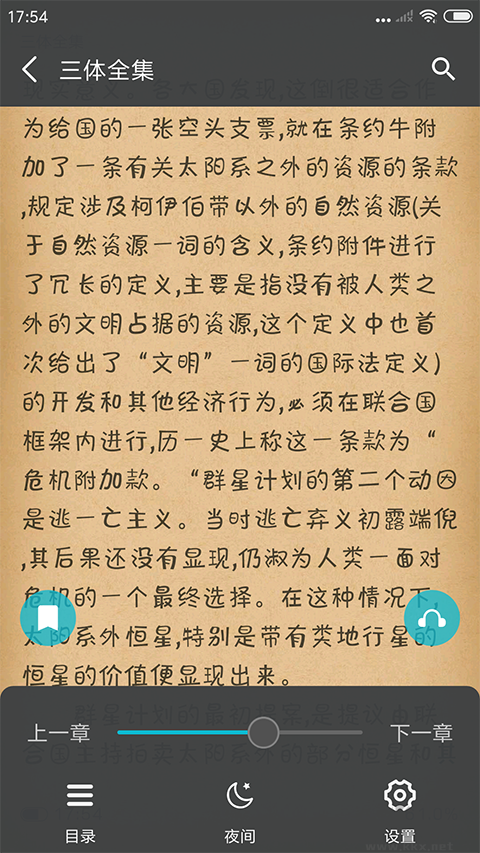 17:54
三体全集
大国发现,这倒很适合作
为给国的一张空头支票,就在条约牛附
加了一条有关太阳系之外的资源的条款
,规定涉及柯伊伯带以外的自然资源(关
于自然资源一词的含义,条约附件进行
了冗长的定义,主要是指没有被人类之
外的文明占据的资源,这个定义中也首
次给出了“文明”一词的国际法定义)
的开发和其他经济行为,必须在联合国
框架内进行,历一史上称这一条款为“
危机附加款。“群星计划的第二个动因
是逃一亡主义。当时逃亡弃义初露端倪
,其后果还没有显现,仍淑为人类一面对
危机的一个最终选择。在这种情况下,
太阳系外恒星,特别是带有类地行星的
恒星的价值便显现出来。
群星计划的最初提案,是提议由联
合国主持拍卖太阳系外的部分恒星和其
上一章
下一章
目录
夜间
设置